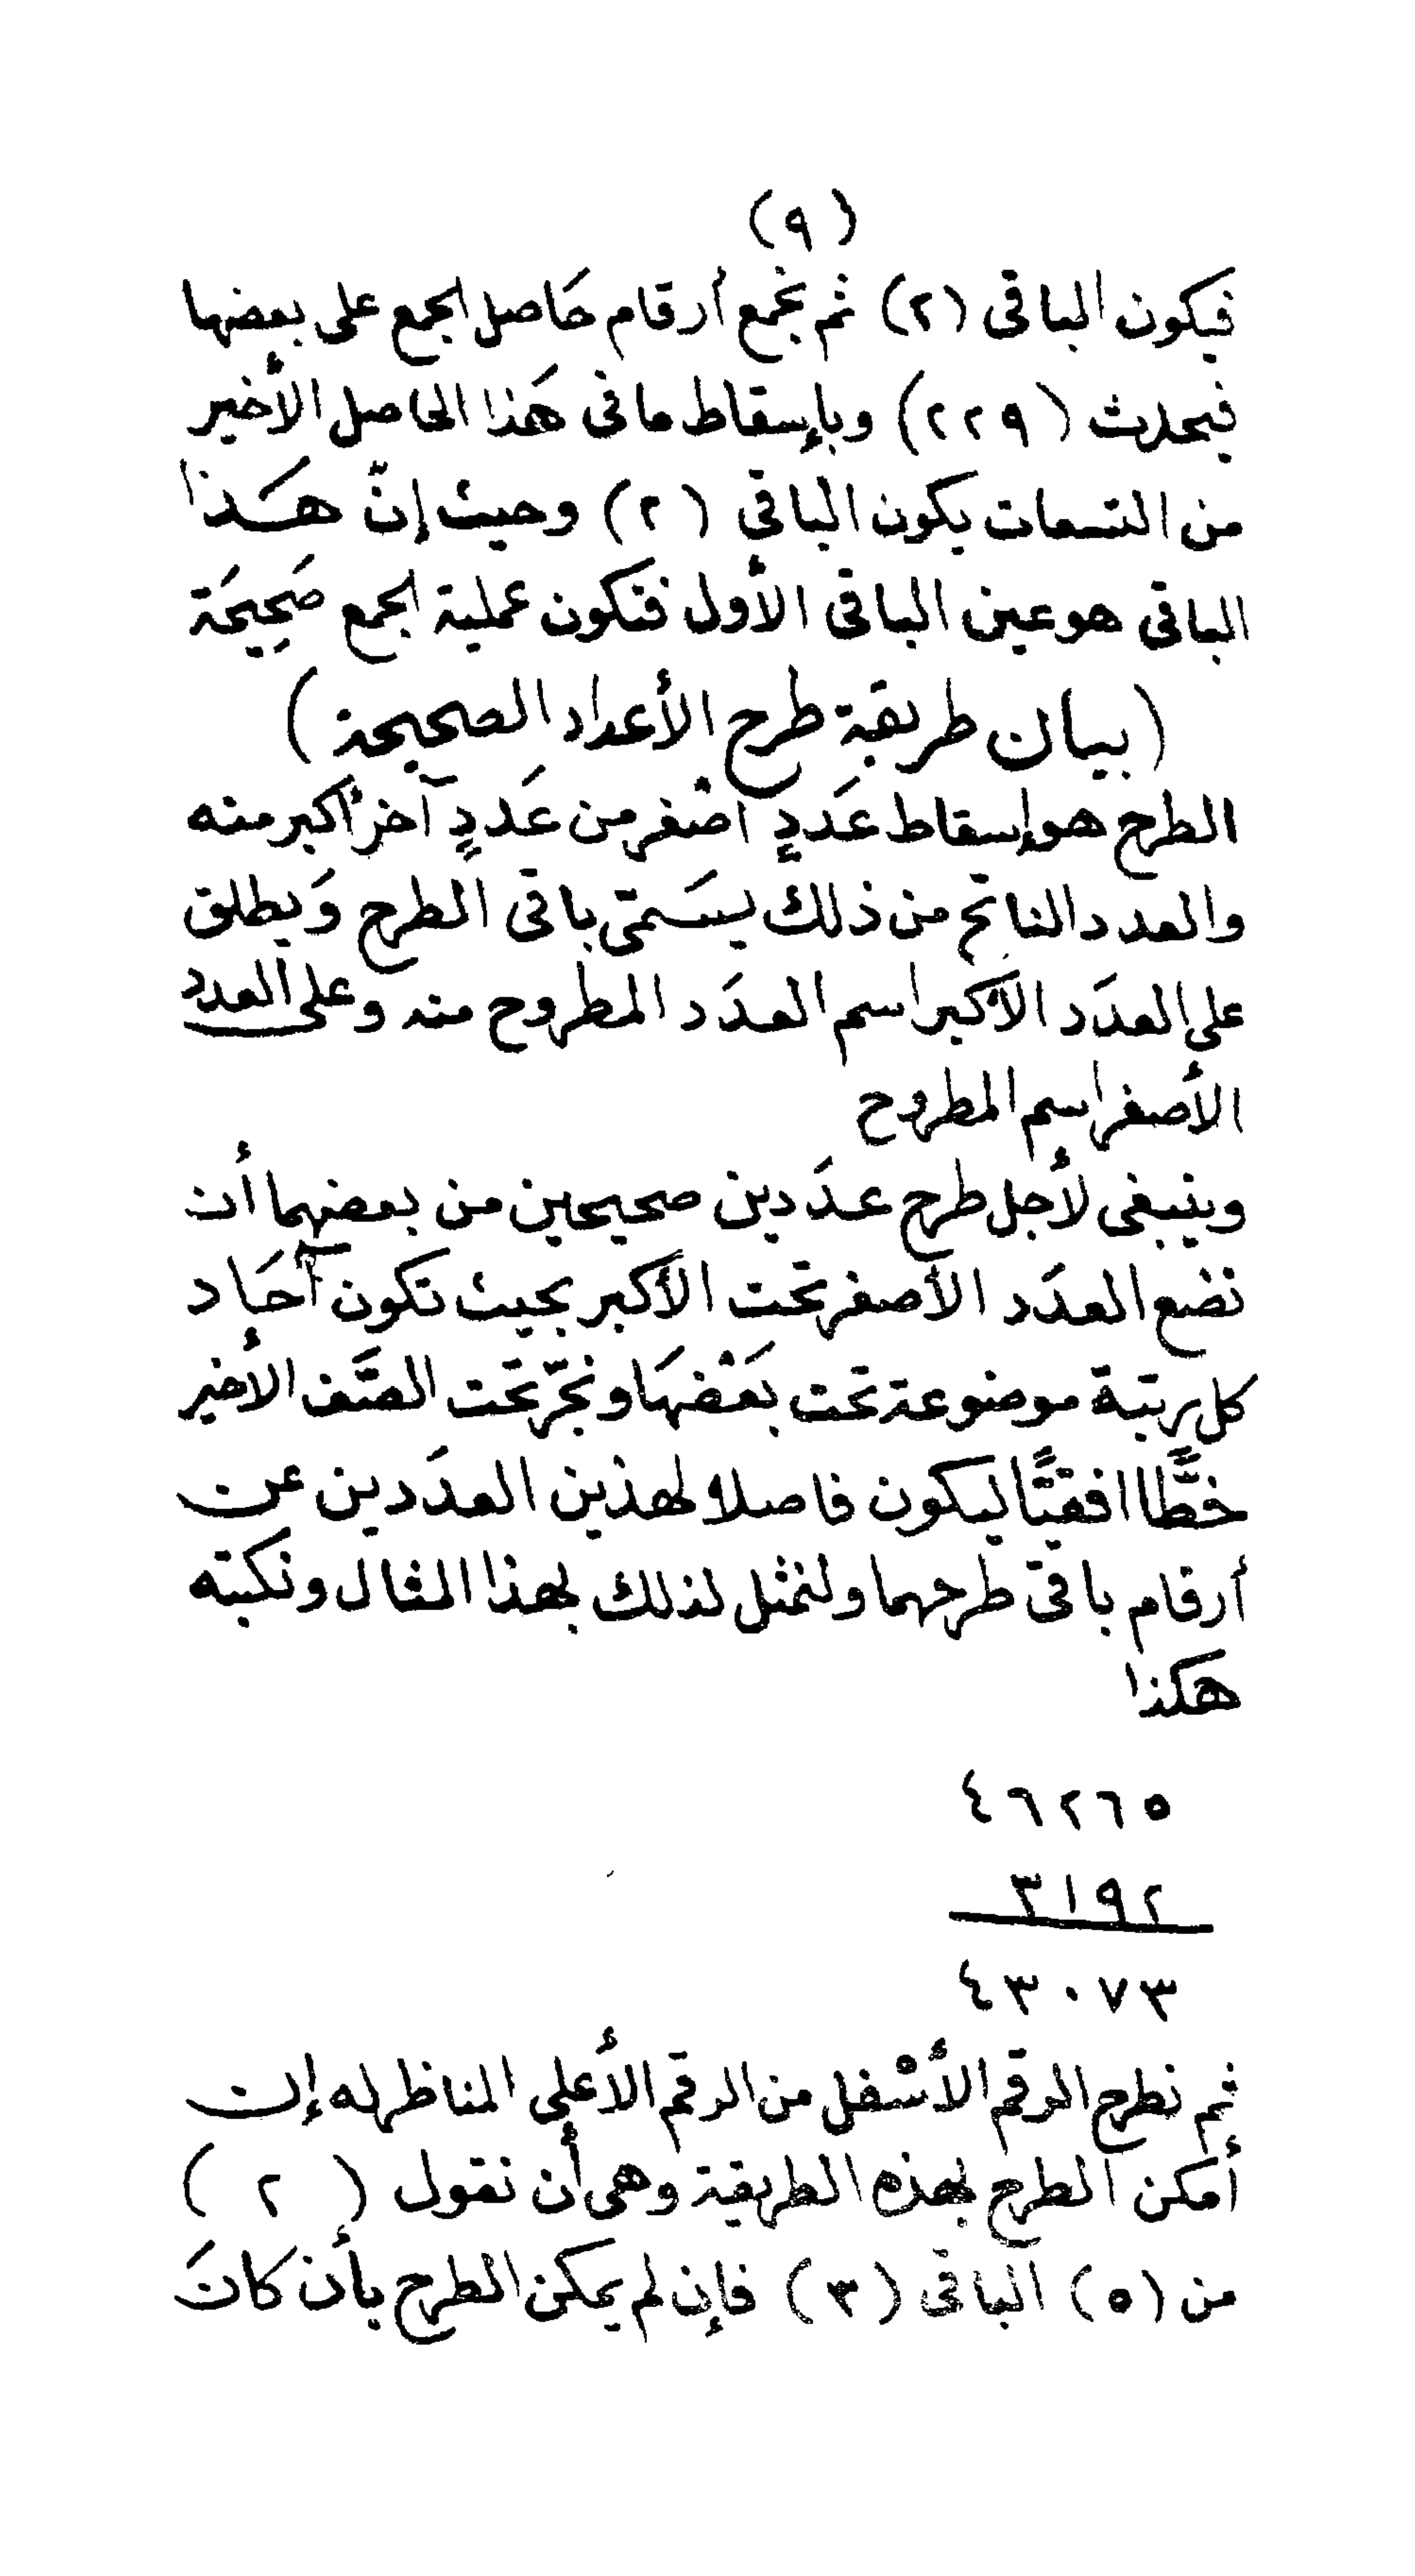 (٩)
فيكون الباقى (٢) ثم نجمع أرقام حَاصل الجمع على بعضها
فيحدث (٢٢٩) وبإسقاط ما فى هَذا الحاصل الأخير
من التسعات يكون الباقى (٢) وحيث إنّ هـَـذا
الباقى هو عين الباقى الأول فتكون عملية الجمع صَحِيحَة
(بيان طريقة طرح الأعداد الصحيحة)
الطرح هو إسقاط عَددٍ أصْغر من عَددٍ آخر أكبر منه
والعدد الناتج من ذلك يسَمىّ باقى الطرح وَيطلق
على العدَد الأكبر اسم العدَد المطروح منه وعلى العدد
الأصغر اسم المطروح
وينبغى لأجل طرح عدَدين صحيحين من بعضهما أن
نضع العدَد الأصغر تحت الأكبر بحيث تكون آحَاد
كل رتبة موضوعة تحت بَعْضهَا ونجرّ تحت الصَّف الأخير
خطًّا افقيًّا ليكون فاصلا لهذين العدَدين عن
أرقام باقى طرحهما ولنمثل لذلك بهذا المثال ونكتبه
هَكذا
٤٦٢٦٥
٣١٩٢
٤٣٠٧٣
ثم نطرح الرقم الأسْفل من الرقم الأعلى المناظر له إن
أمكن الطرح بهذه الطريقة وهى أن نقول (٢)
من (٥) الباقى (٣) فإن لم يمكن الطرح بأن كانَ